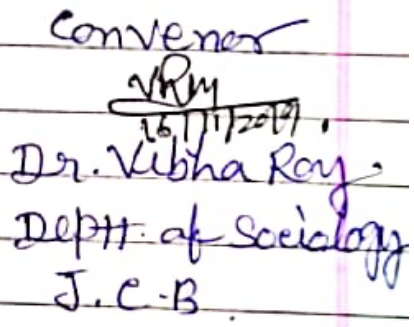 Convenor
VRay
16/11/2019.
Dr. Vibha Ray.
Deptt. of Sociology
J.C.B